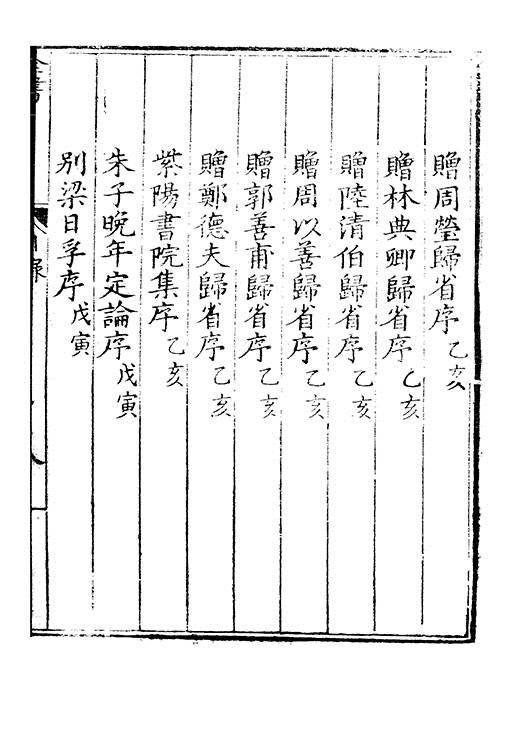 贈周瑩歸省序乙亥
贈林典卿歸省序乙亥
贈陸清伯歸省序乙亥
贈周以善歸省序乙亥
贈郭善甫歸省序乙亥
贈鄭德夫歸省序乙亥
紫陽書院集序乙亥
朱子晚年定論序戊寅
別梁日孚序戊寅
目録